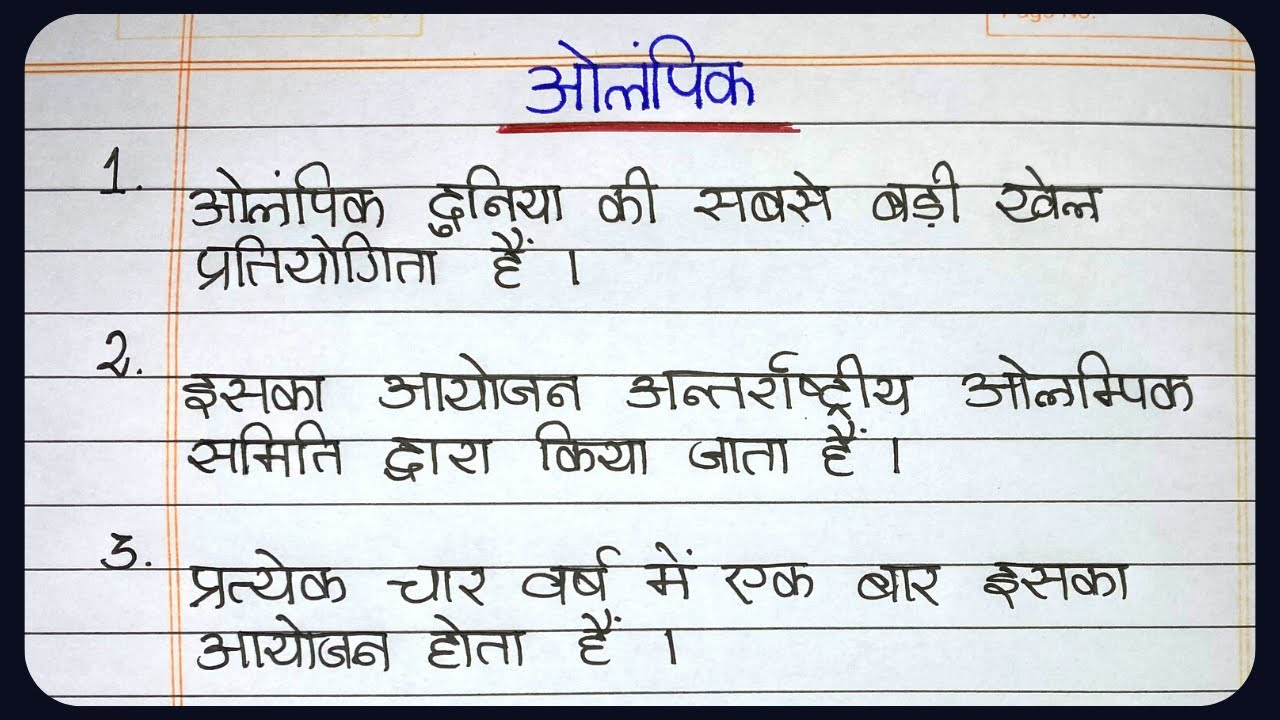 Page No.
ओलंपिक
1. ओलंपिक दुनिया की सबसे बड़ी खेल
प्रतियोगिता हैं ।
2. इसका आयोजन अन्तर्राष्ट्रीय ओलम्पिक
समिति द्वारा किया जाता हैं ।
3. प्रत्येक चार वर्ष में एक बार इसका
आयोजन होता हैं ।